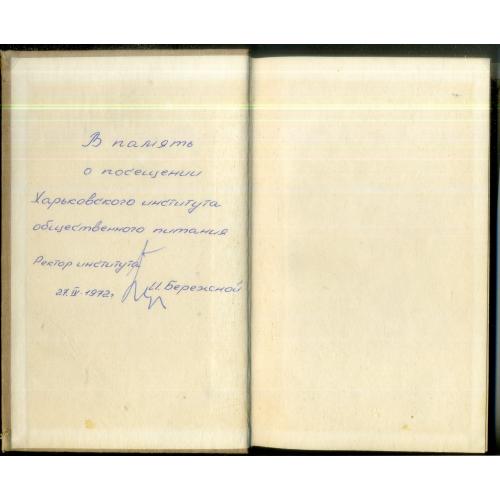 В память
о посещении
Харьковского института
общественного питания
Ректор института
И. Бережной
27.IV.1972г